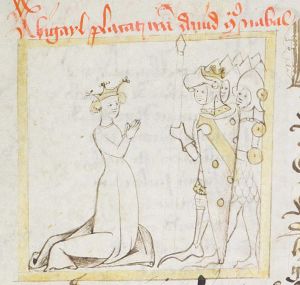 Abigayl placat irã dauid nabal